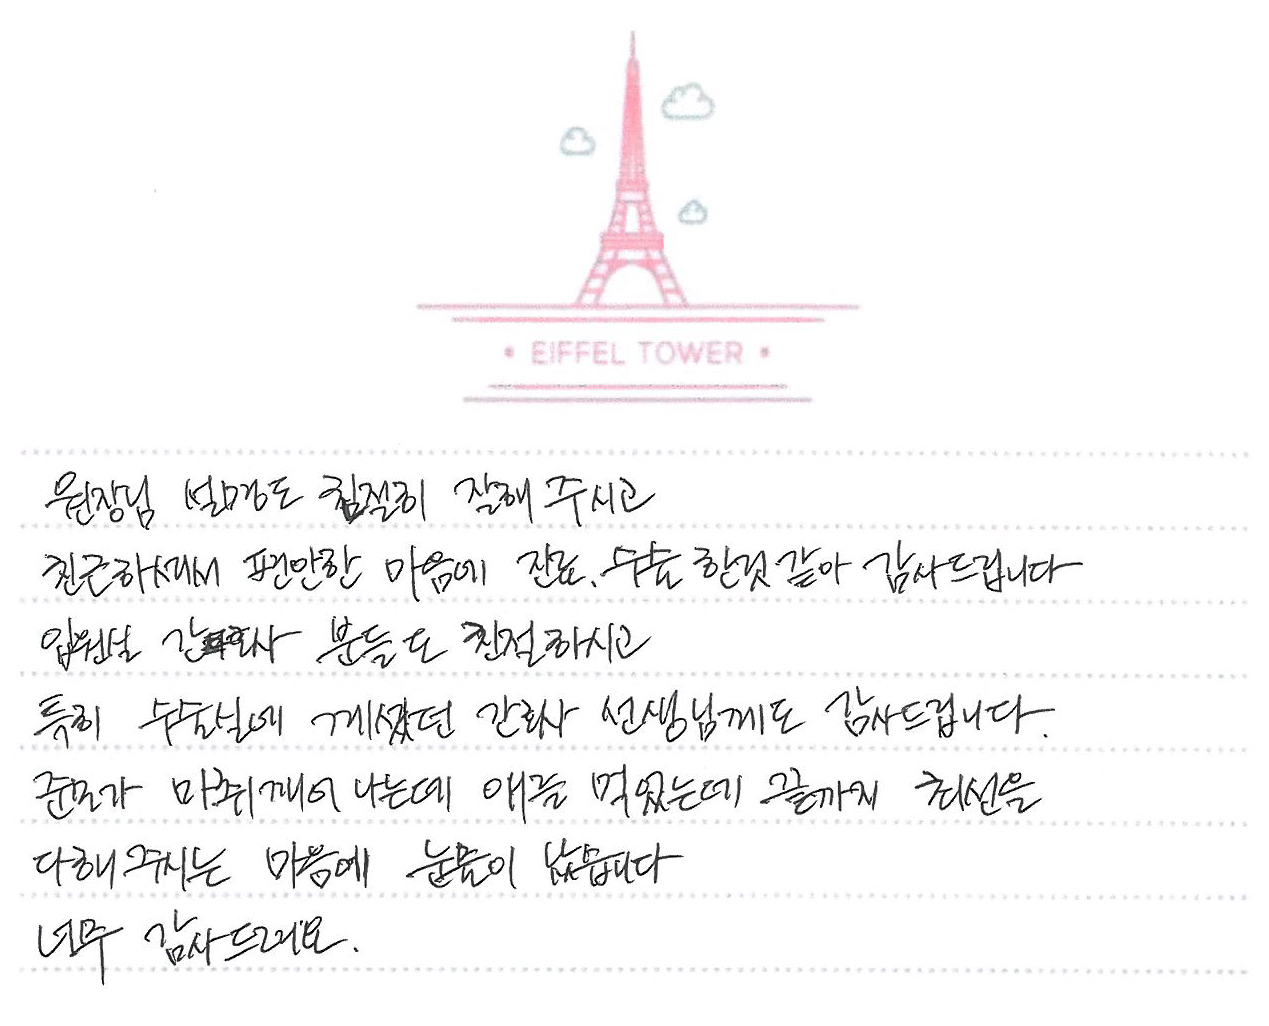 • EIFFEL TOWER •
원장님 설명도 친절히 잘해 주시고
친근하셔서 편안한 마음에 진료, 수술 한것 같아 감사드립니다
입원실 간호사 분들도 친절하시고
특히 수술실에 계셨던 간호사 선생님께도 감사드립니다.
준모가 마취깨어나는데 애를 먹었는데 끝까지 최선을
다해주시는 마음에 눈물이 났습니다
너무 감사드려요.